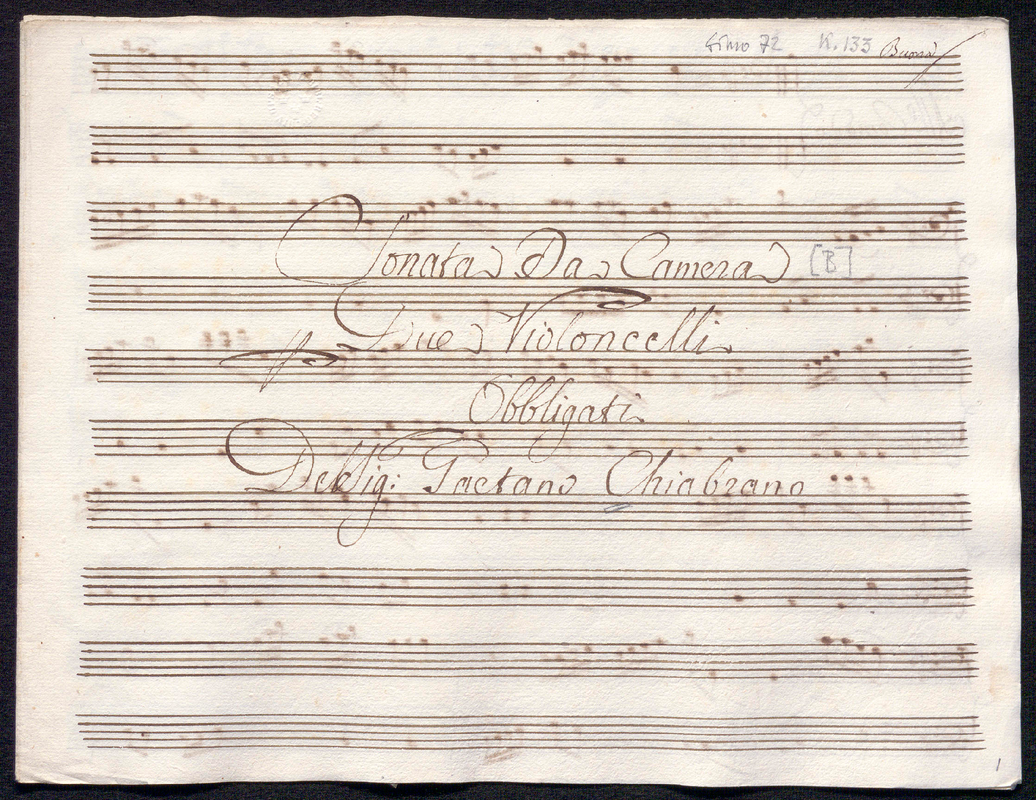 72 K. 133 Buona
Sonata Da Camera [B]
Due Violoncelli
Obbligati
Del Sig: Gaetano Chiabrano
1